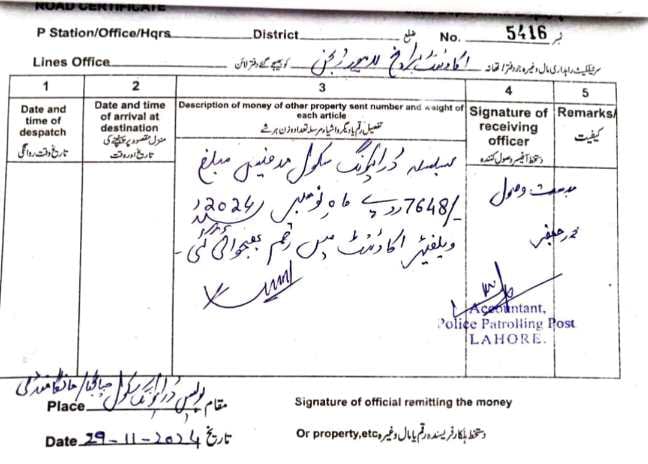 ROAD CERTIFICATE
P Station/Office/Hqrs District ضلع No. 5416 نمبر
Lines Office اکاؤنٹ برانچ لاہور ریجن کو بھیجے گئے دفتر لائن سرٹیفکیٹ راہداری مال وغیرہ جو دفتر تھانہ
1 2 3 4 5
Date and time of despatch
تاریخ و وقت روانگی
Date and time of arrival at destination
منزل مقصود پر پہنچنے کی تاریخ اور وقت
Description of money of other property sent number and weight of each article
تفصیل رقم یا دیگر اشیاء مرسلہ تعداد وزن ہر شے
Signature of receiving officer
دستخط آفیسر وصول کنندہ
Remarks/
کیفیت
بسلسلہ ڈرائیونگ سکول مد فیس مبلغ
7648/- روپے ماہ نومبر 2024
ویلفیئر اکاؤنٹ میں رقم بھجوائی گئی -
بدست وصول
محمد جعفر
Accountant,
Police Patrolling Post
LAHORE.
Place پولیس ڈرائیونگ سکول مانگا منڈی مقام
Signature of official remitting the money
Date 29-11-2024 تاریخ
Or property,etc دستخط اہلکار فریسندہ رقم یا مال وغیرہ